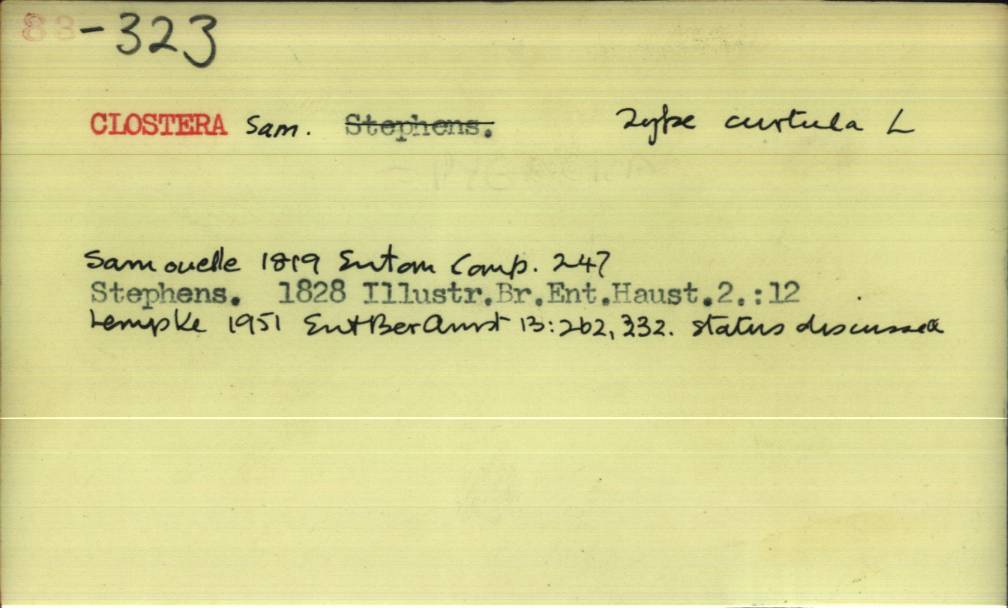 88-323
CLOSTERA Sam. Stephens. Type curtula L
Samouelle 1819 Entom Comp. 247
Stephens. 1828 Illustr.Br.Ent.Haust.2.:12
Lempke 1951 Ent Ber Amst 13:262, 332. status discussed